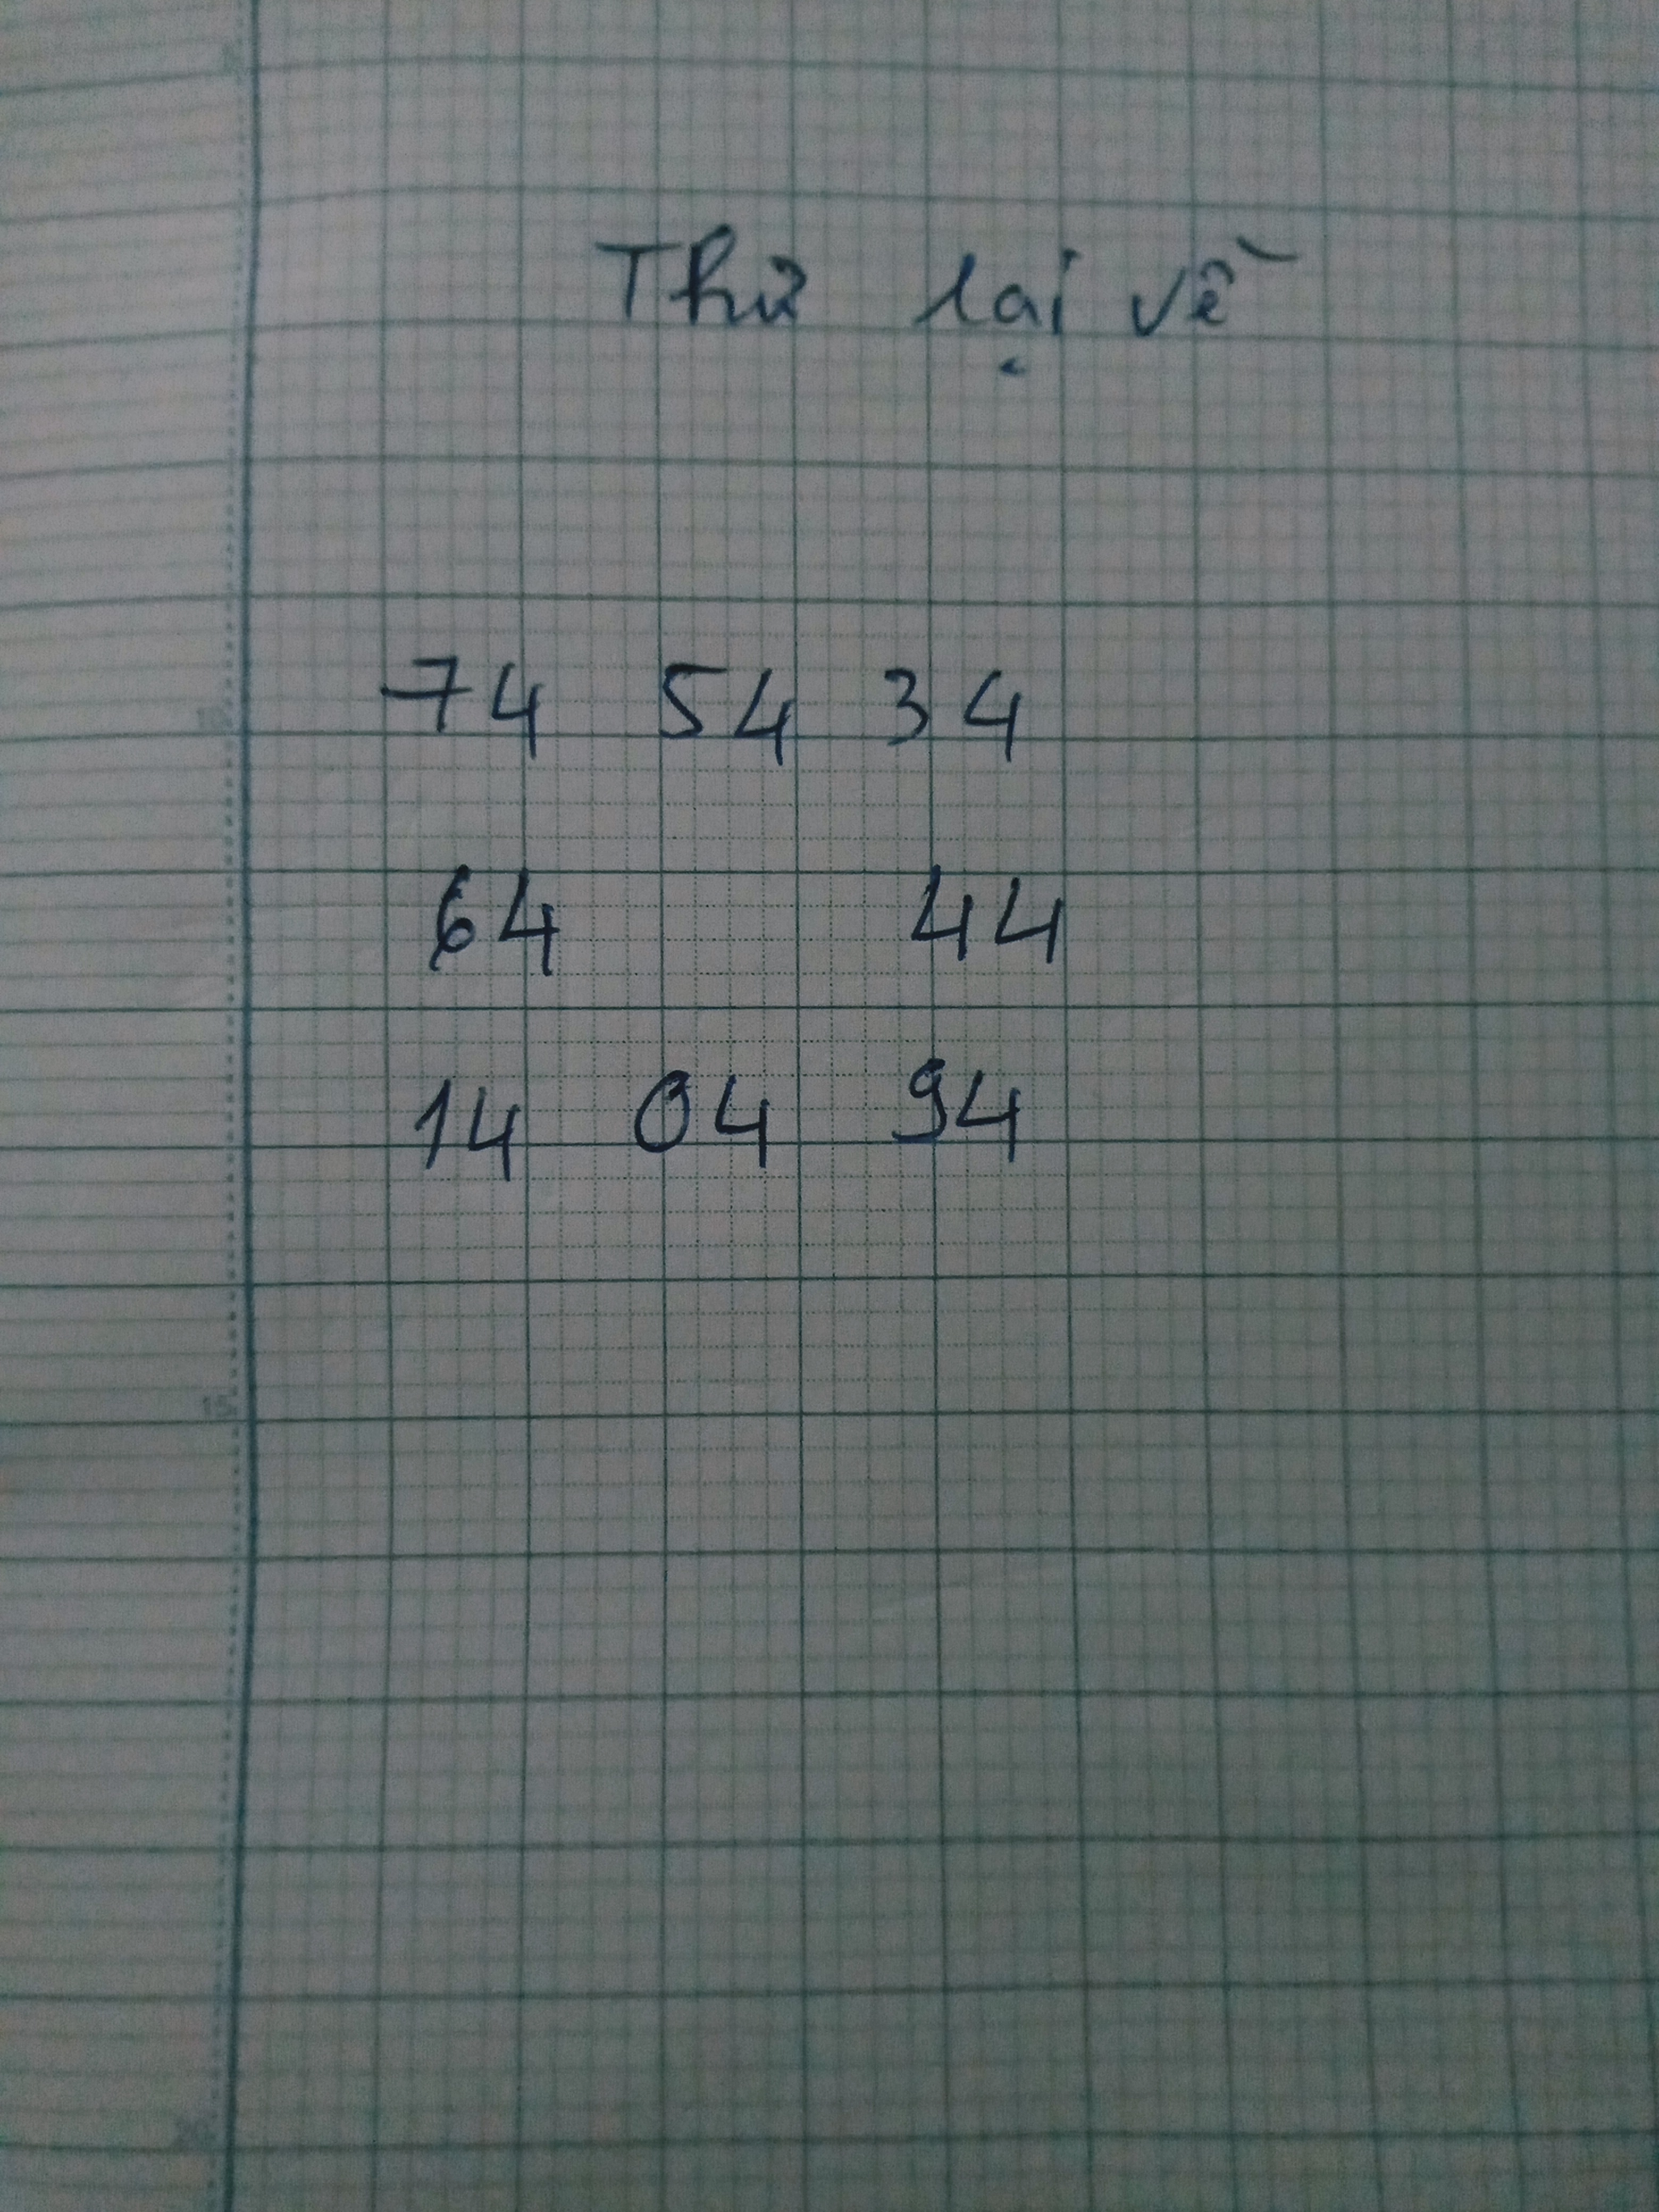 Thử lại về
74 54 34
64 44
14 04 94